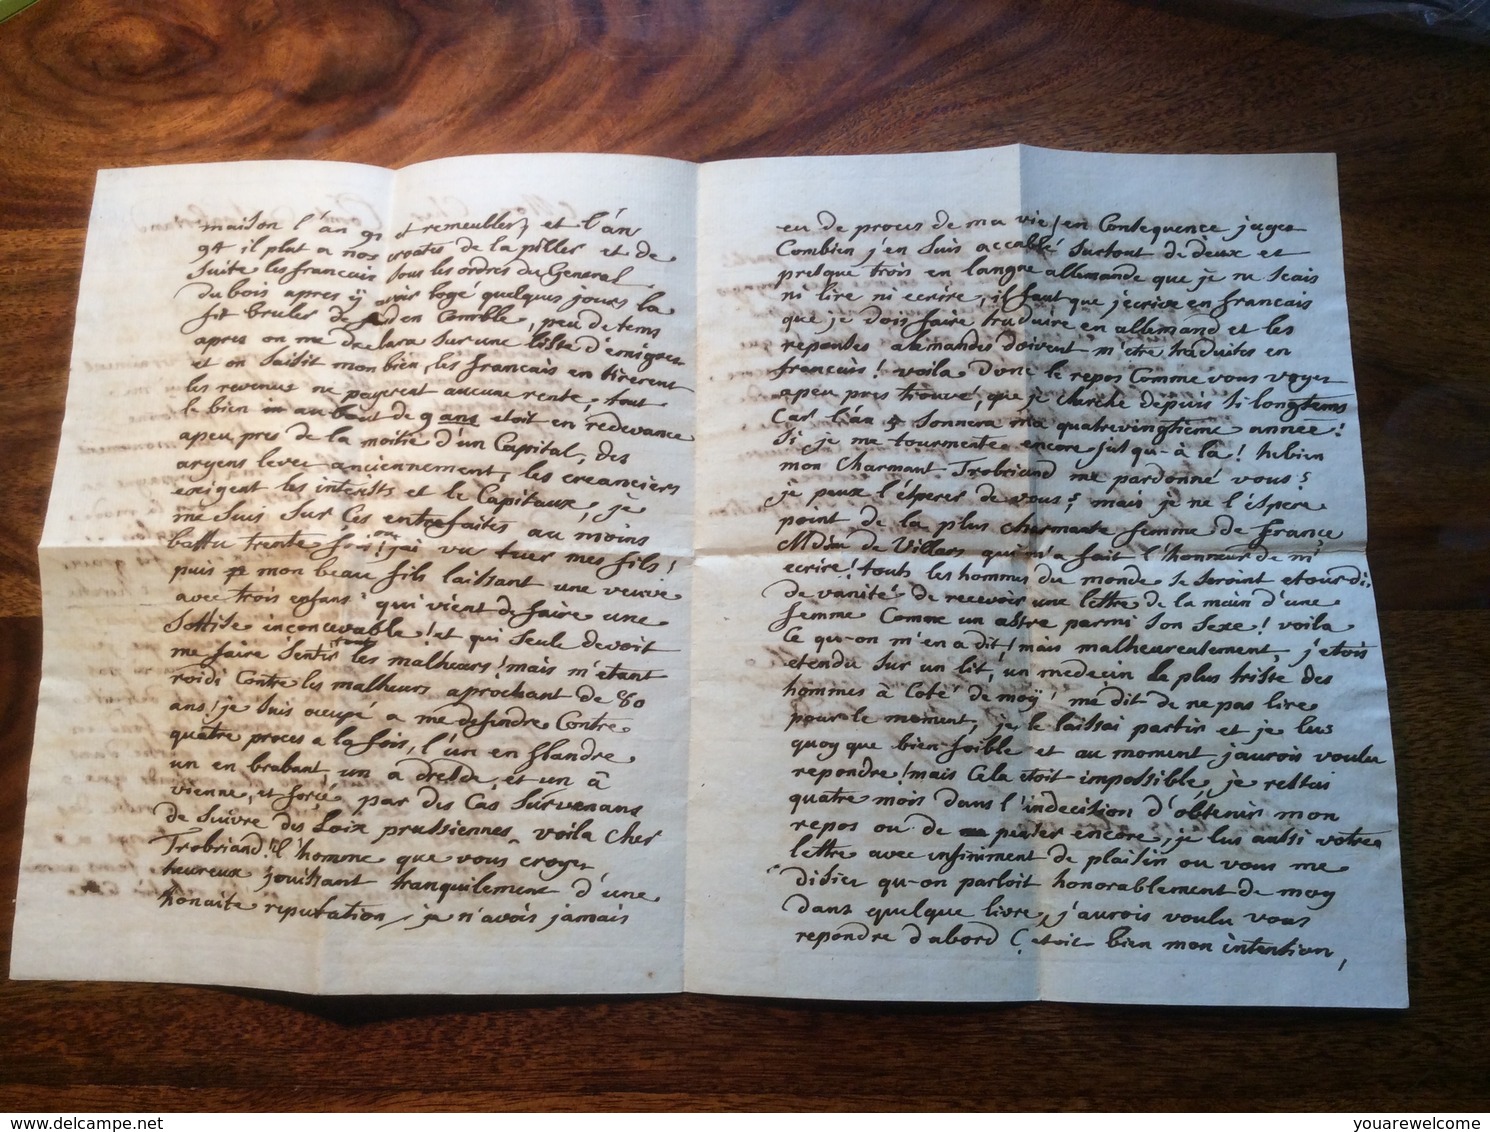 maison l'án 92 et remeublez et l'án
94 il plut a nos croates de la piller et de
suite les francais sous les ordres du General
du bois apres ÿ avoir logé quelques jours la
fit bruler de fond en Comble, peu de tems
apres on me declara sur une liste d'émigrez
et on saisit mon bien, les francais en tirerent
les revenus ne payerent aucune rente, tout
le bien au bout de 9 ans etoit en redevance
apeu pres de la moitie d'un Capital, des
argens levez anciennement, les creanciers
exigent les interests et le Capitaux, je
me suis sur ces entrefaites au moins
battu trente fois, j'ai vu tuer mes fils!
puis mon beau fils laissant une veuve
avec trois enfans qui vient de faire une
sottise inconcevable! et qui seule devoit
me faire sentir tout les malheurs! mais m'étant
roidi Contre les malheurs aprochant de 80
ans! je suis occupé a me defendre Contre
quatre proces a la fois, l'un en flandre
un en brabant, un a dresde, et un á
vienne, et forcé par des Cas survenans
de suivre des Loix prussiennes, voila cher
Trobriand! l'homme que vous croyez
heureux jouissant tranquilement d'une
honaite reputation, je n'avois jamais
eu de proces de ma vie! en Consequence jugez
Combien j'en suis accablé surtout de deux et
presque trois en langue allemande que je ne scais
ni lire ni ecrire, il faut que j'ecrive en francais
que je dois faire traduire en allemand et les
reponses alemandes doivent m'etre traduites en
francais! voila donc le repos Comme vous voyez
apeu pres trouvé, que je cherche depuis si longtems
Car l'an 4 sonnera ma quatrevingtieme année!
si je me tourmente encore jusqu-à là! hebien
mon Charmant Trobriand me pardonné vous?
je peux l'ésperer de vous? mais je ne l'éspere
point de la plus charmante femme de france
Mdme de Villers qui m'a fait l'honneur de m'
ecrire! touts les hommes du monde se seroint etourdi
de vanité de recevoir une lettre de la main d'une
femme Comme un astre parmi son sexe! voila
ce qu-on m'en a dit! mais malheureusement, j'etois
etendu sur un lit, un medecin le plus triste des
hommes à Coté de moÿ! me dit de ne pas lire
pour le moment, je le laissai partir et je lus
quoy que bien foible et au moment j'aurois voulu
repondre! mais Cela etoit impossible, je restai
quatre mois dans l'indecision d'obtenir mon
repos ou de perir encore, je lus aussi votre
lettre avec infiniment de plaisir ou vous me
disiez qu-on parloit honorablement de moy
dans quelque livre, j'aurois voulu vous
repondre d'abord C'etoit bien mon intention,
youarewelcome